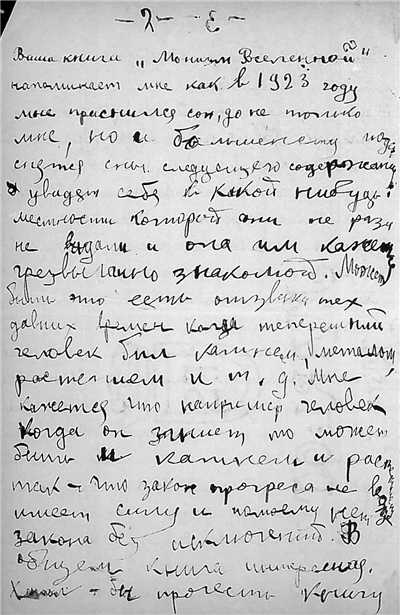 - 2 -
Ваша книга „Монизм Вселенной"
напоминает мне как в 1923 году
мне приснился сон, да не только
мне, но и большенству
снятся сны следующего содержания
увидят себя в какой нибудь
местности которой они не разу
не видали и она им кажет
чрезвычайно знакомой. Может
быть это есть отзвуки тех
давних времен когда теперешний
человек был камнем, металом
растением и т. д. Мне
кажется что например человек
когда он умнет то может
быть и камнем и раст
так - что закон прогреса не в
имеет силу и по моему нет
закона без исключений. В
общем книга интересная.
Хотел - бы прочесть книгу